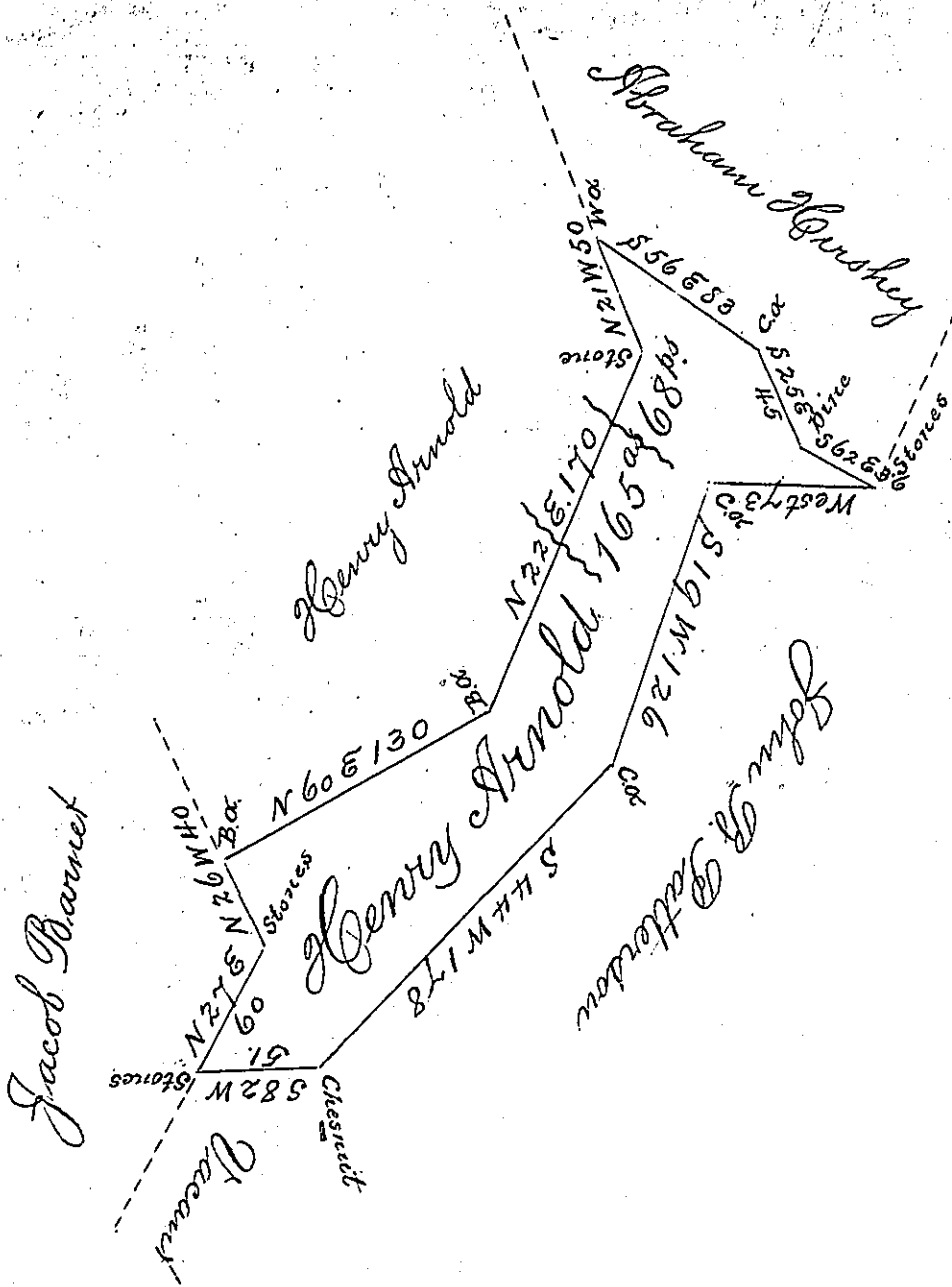 Abraham Hershey
Henry Arnold
Jacob Barnet
John R. Patterson
Vacant
Henry Arnold 165 as 68 ps
N 21 W 50
W.o.
S 59 E 83
C.o.
S 25 E
54
Pine
S 29 E
Stones
West 73
C.o.
S 19 W 126
C.o.
S 44 W 178
Chesnut
S 82 W
51.
Stones
N 27 E
60
Stones
N 26 W 40
B.o.
N 60 E 130
B.o.
N 22 E. 170
Stone